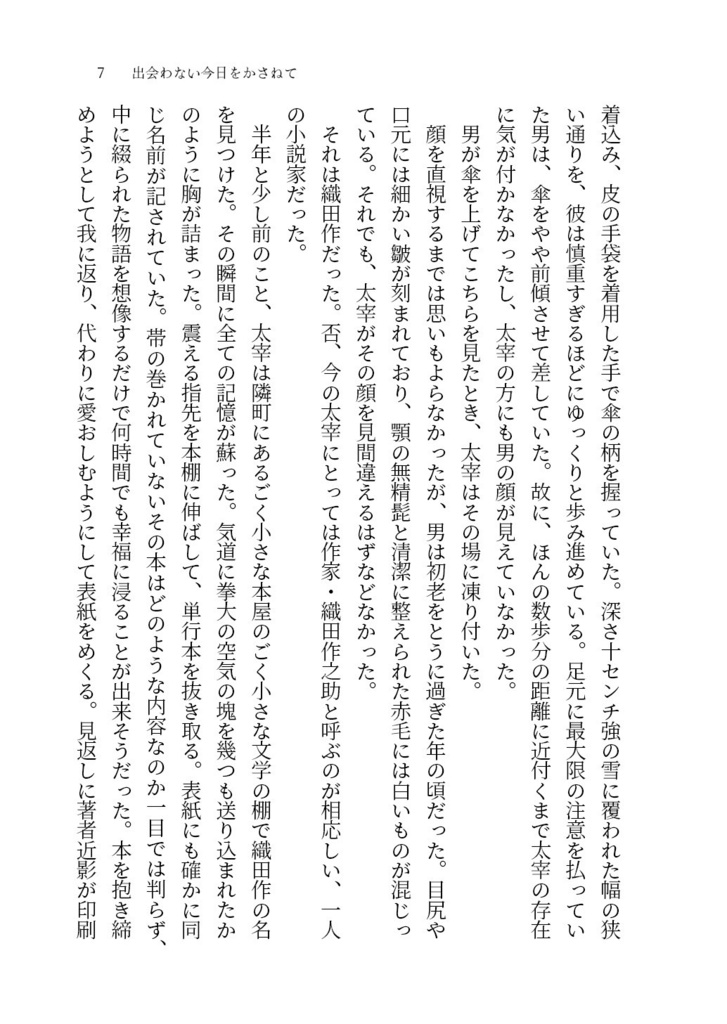 7 出会わない今日をかさねて
着込み、皮の手袋を着用した手で傘の柄を握っていた。深さ十センチ強の雪に覆われた幅の狭
い通りを、彼は慎重すぎるほどにゆっくりと歩み進めている。足元に最大限の注意を払ってい
た男は、傘をやや前傾させて差していた。故に、ほんの数歩分の距離に近付くまで太宰の存在
に気が付かなかったし、太宰の方にも男の顔が見えていなかった。
男が傘を上げてこちらを見たとき、太宰はその場に凍り付いた。
顔を直視するまでは思いもよらなかったが、男は初老をとうに過ぎた年の頃だった。目尻や
口元には細かい皺が刻まれており、顎の無精髭と清潔に整えられた赤毛には白いものが混じっ
ている。それでも、太宰がその顔を見間違えるはずなどなかった。
それは織田作だった。否、今の太宰にとっては作家・織田作之助と呼ぶのが相応しい、一人
の小説家だった。
半年と少し前のこと、太宰は隣町にあるごく小さな本屋のごく小さな文学の棚で織田作の名
を見つけた。その瞬間に全ての記憶が蘇った。気道に拳大の空気の塊を幾つも送り込まれたか
のように胸が詰まった。震える指先を本棚に伸ばして、単行本を抜き取る。表紙にも確かに同
じ名前が記されていた。帯の巻かれていないその本はどのような内容なのか一目では判らず、
中に綴られた物語を想像するだけで何時間でも幸福に浸ることが出来そうだった。本を抱き締
めようとして我に返り、代わりに愛おしむようにして表紙をめくる。見返しに著者近影が印刷